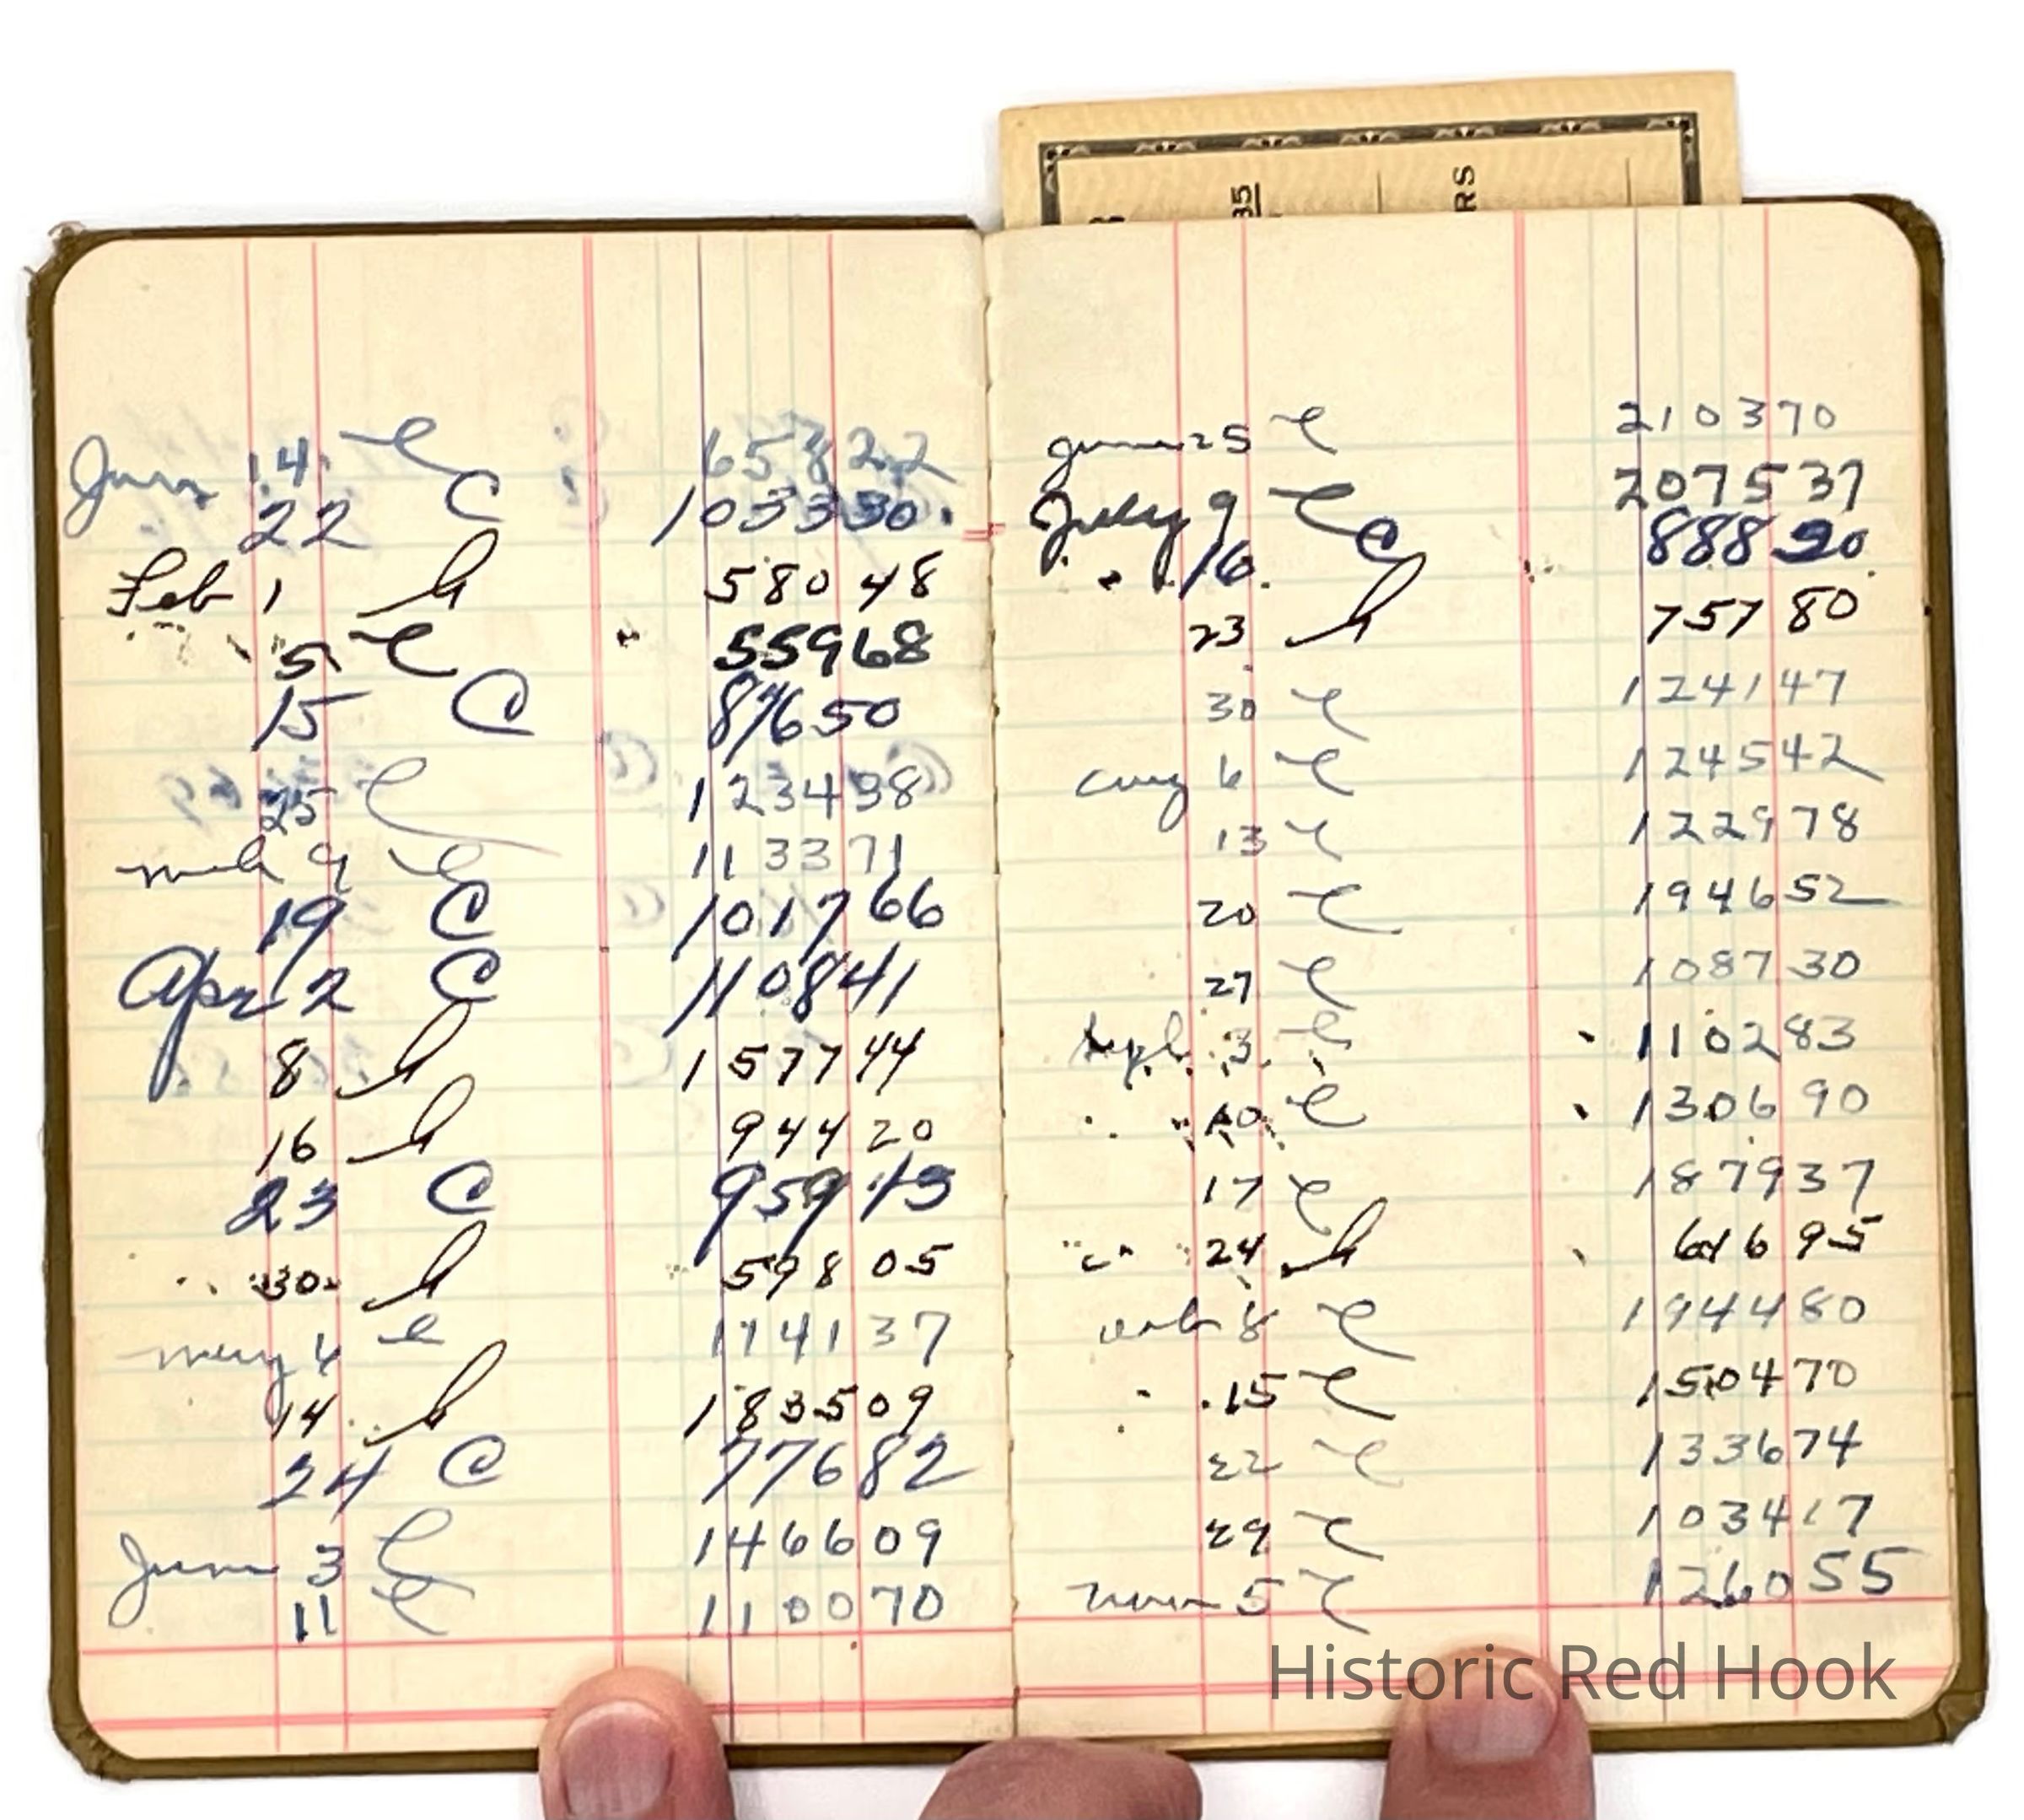 35
RS
Jan 14 C 65822
22 C 103330
Feb 1 h 580 48
5 C 55968
15 C 87650
25 C 123498
Mch 9 C 113371
19 C 101766
Apr 2 C 110841
8 h 1577 44
16 h 944 20
23 C 959 43
30 h 598 05
May 6 C 1141 37
14 h 183509
24 C 77682
June 3 C 146609
11 C 110070
June 25 C 210370
July 9 C 207537
16 C 88820
23 h 757 80
30 C 124147
Aug 6 C 124542
13 C 122978
20 C 194652
27 C 108730
Sept 3 C 110283
10 C 130690
17 C 187937
24 h 95
Octr 8 C 194480
15 C 150470
22 C 133674
29 C 103417
Novr 5 C 126055
Historic Red Hook